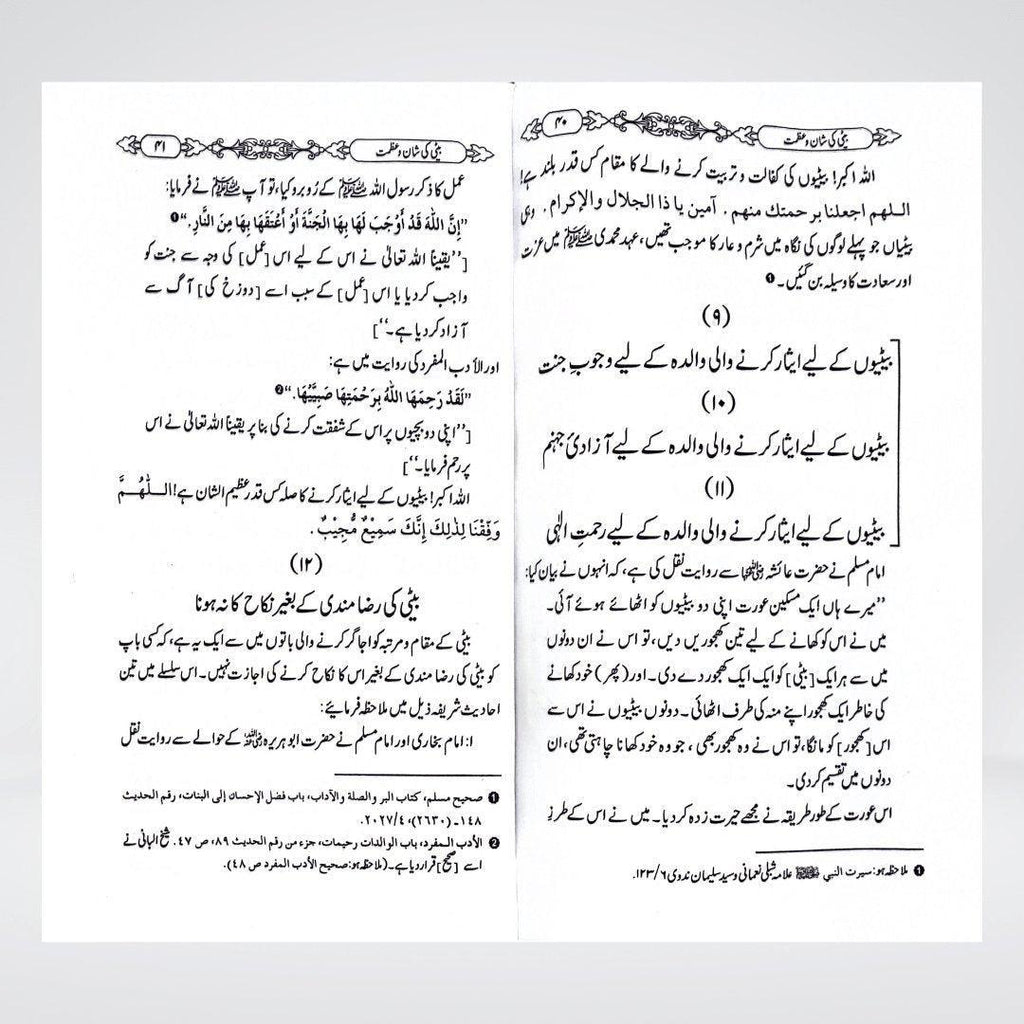 ۴۰
بیٹی کی شان و عظمت
اللہ اکبر! بیٹیوں کی کفالت و تربیت کرنے والے کا مقام کس قدر بلند ہے!
اللهم اجعلنا برحمتك منهم. آمين يا ذا الجلال والإكرام. وہی
بیٹیاں جو پہلے لوگوں کی نگاہ میں شرم و عار کا موجب تھیں، عہد محمدی ﷺ میں عزت
اور سعادت کا وسیلہ بن گئیں۔ ❶
(۹)
بیٹیوں کے لیے ایثار کرنے والی والدہ کے لیے وجوبِ جنت
(۱۰)
بیٹیوں کے لیے ایثار کرنے والی والدہ کے لیے آزادیٔ جہنم
(۱۱)
بیٹیوں کے لیے ایثار کرنے والی والدہ کے لیے رحمتِ الٰہی
امام مسلم نے حضرت عائشہ رضی اللہ عنہا سے روایت نقل کی ہے، کہ انہوں نے بیان کیا:
”میرے ہاں ایک مسکین عورت اپنی دو بیٹیوں کو اٹھائے ہوئے آئی۔
میں نے اس کو کھانے کے لیے تین کھجوریں دیں، تو اس نے ان دونوں
میں سے ہر ایک [بیٹی] کو ایک ایک کھجور دے دی۔ اور (پھر) خود کھانے
کی خاطر ایک کھجور اپنے منہ کی طرف اٹھائی۔ دونوں بیٹیوں نے اس سے
اس [کھجور] کو مانگا، تو اس نے وہ کھجور بھی، جو وہ خود کھانا چاہتی تھی، ان
دونوں میں تقسیم کر دی۔
اس عورت کے طور طریقہ نے مجھے حیرت زدہ کر دیا۔ میں نے اس کے طرزِ
❶ ملاحظہ ہو: سیرت النبی ﷺ علامہ شبلی نعمانی و سید سلیمان ندوی ۶/۱۲۳.
۴۱
بیٹی کی شان و عظمت
عمل کا ذکر رسول اللہ ﷺ کے رُوبرو کیا، تو آپ ﷺ نے فرمایا:
”إِنَّ اللّٰهَ قَدْ أَوْجَبَ لَهَا بِهَا الْجَنَّةَ أَوْ أَعْتَقَهَا بِهَا مِنَ النَّارِ.“ ❶
[”یقیناً اللہ تعالیٰ نے اس کے لیے اس [عمل] کی وجہ سے جنت کو
واجب کر دیا یا اس [عمل] کے سبب اسے [دوزخ کی] آگ سے
آزاد کر دیا ہے۔“]
اور الأدب المفرد کی روایت میں ہے:
”لَقَدْ رَحِمَهَا اللّٰهُ بِرَحْمَتِهَا صَبِيَّيْهَا.“ ❷
[”اپنی دو بچیوں پر اس کے شفقت کرنے کی بنا پر یقیناً اللہ تعالیٰ نے اس
پر رحم فرمایا۔“]
اللہ اکبر! بیٹیوں کے لیے ایثار کرنے کا صلہ کس قدر عظیم الشان ہے! اللّٰهُمَّ
وَفِّقْنَا لِذٰلِكَ إِنَّكَ سَمِيْعٌ مُّجِيْبٌ.
(۱۲)
بیٹی کی رضا مندی کے بغیر نکاح کا نہ ہونا
بیٹی کے مقام و مرتبہ کو اجاگر کرنے والی باتوں میں سے ایک یہ ہے، کہ کسی باپ
کو بیٹی کی رضا مندی کے بغیر اس کا نکاح کرنے کی اجازت نہیں۔ اس سلسلے میں تین
احادیث شریفہ ذیل میں ملاحظہ فرمایئے:
ا: امام بخاری اور امام مسلم نے حضرت ابو ہریرہ رضی اللہ عنہ کے حوالے سے روایت نقل
❶ صحیح مسلم، کتاب البر والصلة والآداب، باب فضل الإحسان إلى البنات، رقم الحديث
۱۴۸۔ (۲۶۳۰)، ۴/۲۰۲۷.
❷ الأدب المفرد، باب الوالدات رحيمات، جزء من رقم الحديث ۸۹، ص ۴۷. شیخ البانی نے
اسے [صحیح] قرار دیا ہے۔ (ملاحظہ ہو: صحيح الأدب المفرد ص ۴۸).